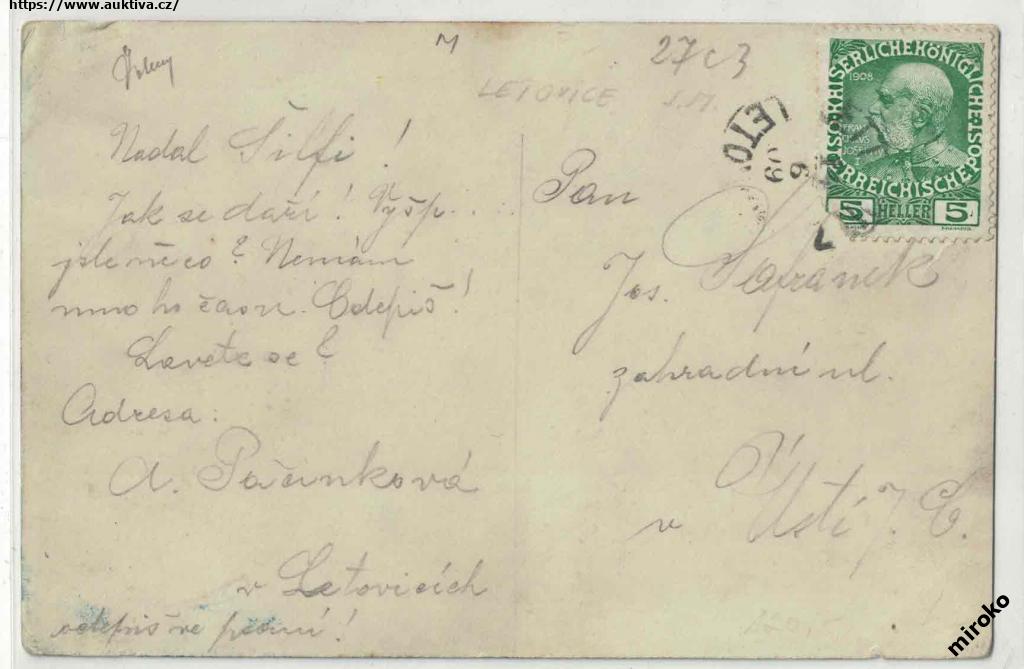 https://www.auktiva.cz/
M
27c3
LETOVICE
Nadal Šilfi!
Jak se daří! Vyšp...
jste něco? Nemám
mnoho času. Odepiš!
se?
Adresa:
A. Pačinková
v Letovicích
odepiš ve psaní!
Pan
Jos. Šafránek
zahradní ul.
v Ústí
KAISERLICHE KÖNIGLICHE ÖSTERREICHISCHE POST
1908
5 HELLER 5
LETO
09
miroko